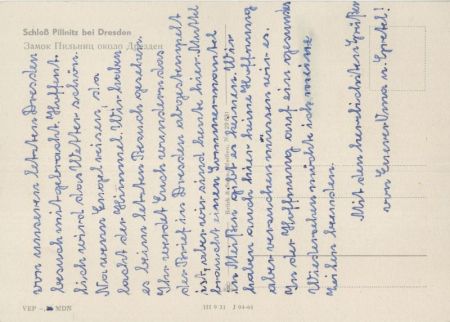 Schloß Pillnitz bei Dresden
Замок Пильниц около Дрезден
von unserem letzten Dresden
besuch mitgebracht. Hoffent
lich wird das Wetter schön.
Na wenn Engel reisen, da
lacht der Himmel. Wir haben
es beim letzten Besuch gesehen.
Ihr werdet Euch wundern das
der Brief in Dresden abgestempelt
ist, aber wir sind heute hier. Mutti
braucht einen Sommermantel
in Meißen gab es keinen. Wir
haben auch hier keine Hoffnung
aber versuchen müssen wir es.
In der Hoffnung auf ein gesundes
Wiedersehen möchte ich meine
Zeilen beenden.
Mit den herzlichsten Grüßen
von Eurer Oma u. Gretel!
VEB
MDN
III 9 21